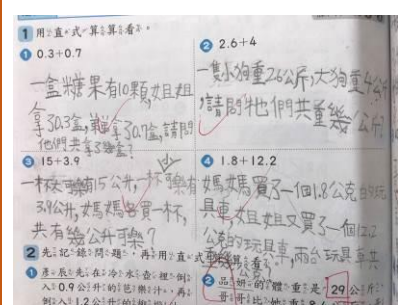 1 用直式算算看。
① 0.3+0.7
一盒糖果有10顆,姐姐
拿了0.3盒,
拿了0.7盒,請問
他們共拿了幾盒?
② 2.6+4
一隻小狗重2.6公斤,大狗重4公斤
,請問牠們共重幾公斤?
③ 15+3.9
一杯 有15公升,一杯可樂有
3.9公升,媽媽各買一杯,
共有幾公升可樂?
④ 1.8+12.2
媽媽買了一個1.8公克的玩
具車,姐姐又買了一個12.2
公克的玩具車,兩台玩具車共
2 先記錄問題,再用直式 算看。
① 彥辰先在冷水壺裡倒
入0.9公升的 樂汁,再
倒入1.2公升的
② 品妍的體重是29公斤,
哥哥比她重